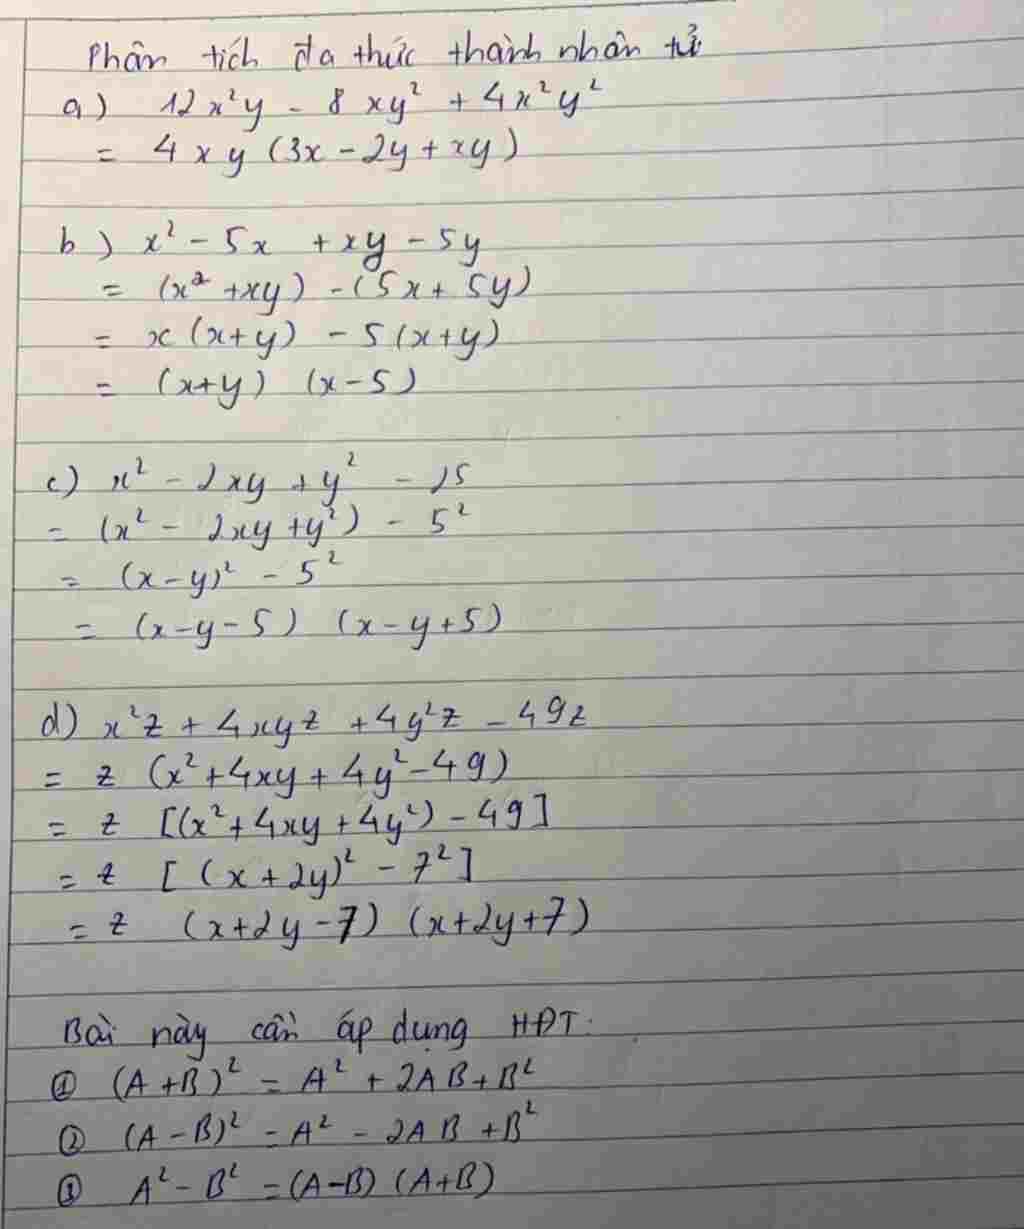 Phân tích đa thức thành nhân tử
a) 12x²y - 8xy² + 4x²y²
= 4xy (3x - 2y + xy)
b) x² - 5x + xy - 5y
= (x² + xy) - (5x + 5y)
= x (x+y) - 5 (x+y)
= (x+y) (x-5)
c) x² - 2xy + y² - 25
= (x² - 2xy + y²) - 5²
= (x-y)² - 5²
= (x-y-5) (x-y+5)
d) x²z + 4xyz + 4y²z - 49z
= z (x² + 4xy + 4y² - 49)
= z [(x² + 4xy + 4y²) - 49]
= z [(x+2y)² - 7²]
= z (x+2y-7) (x+2y+7)
Bài này cần áp dụng HĐT:
① (A+B)² = A² + 2AB + B²
② (A-B)² = A² - 2AB + B²
③ A² - B² = (A-B) (A+B)